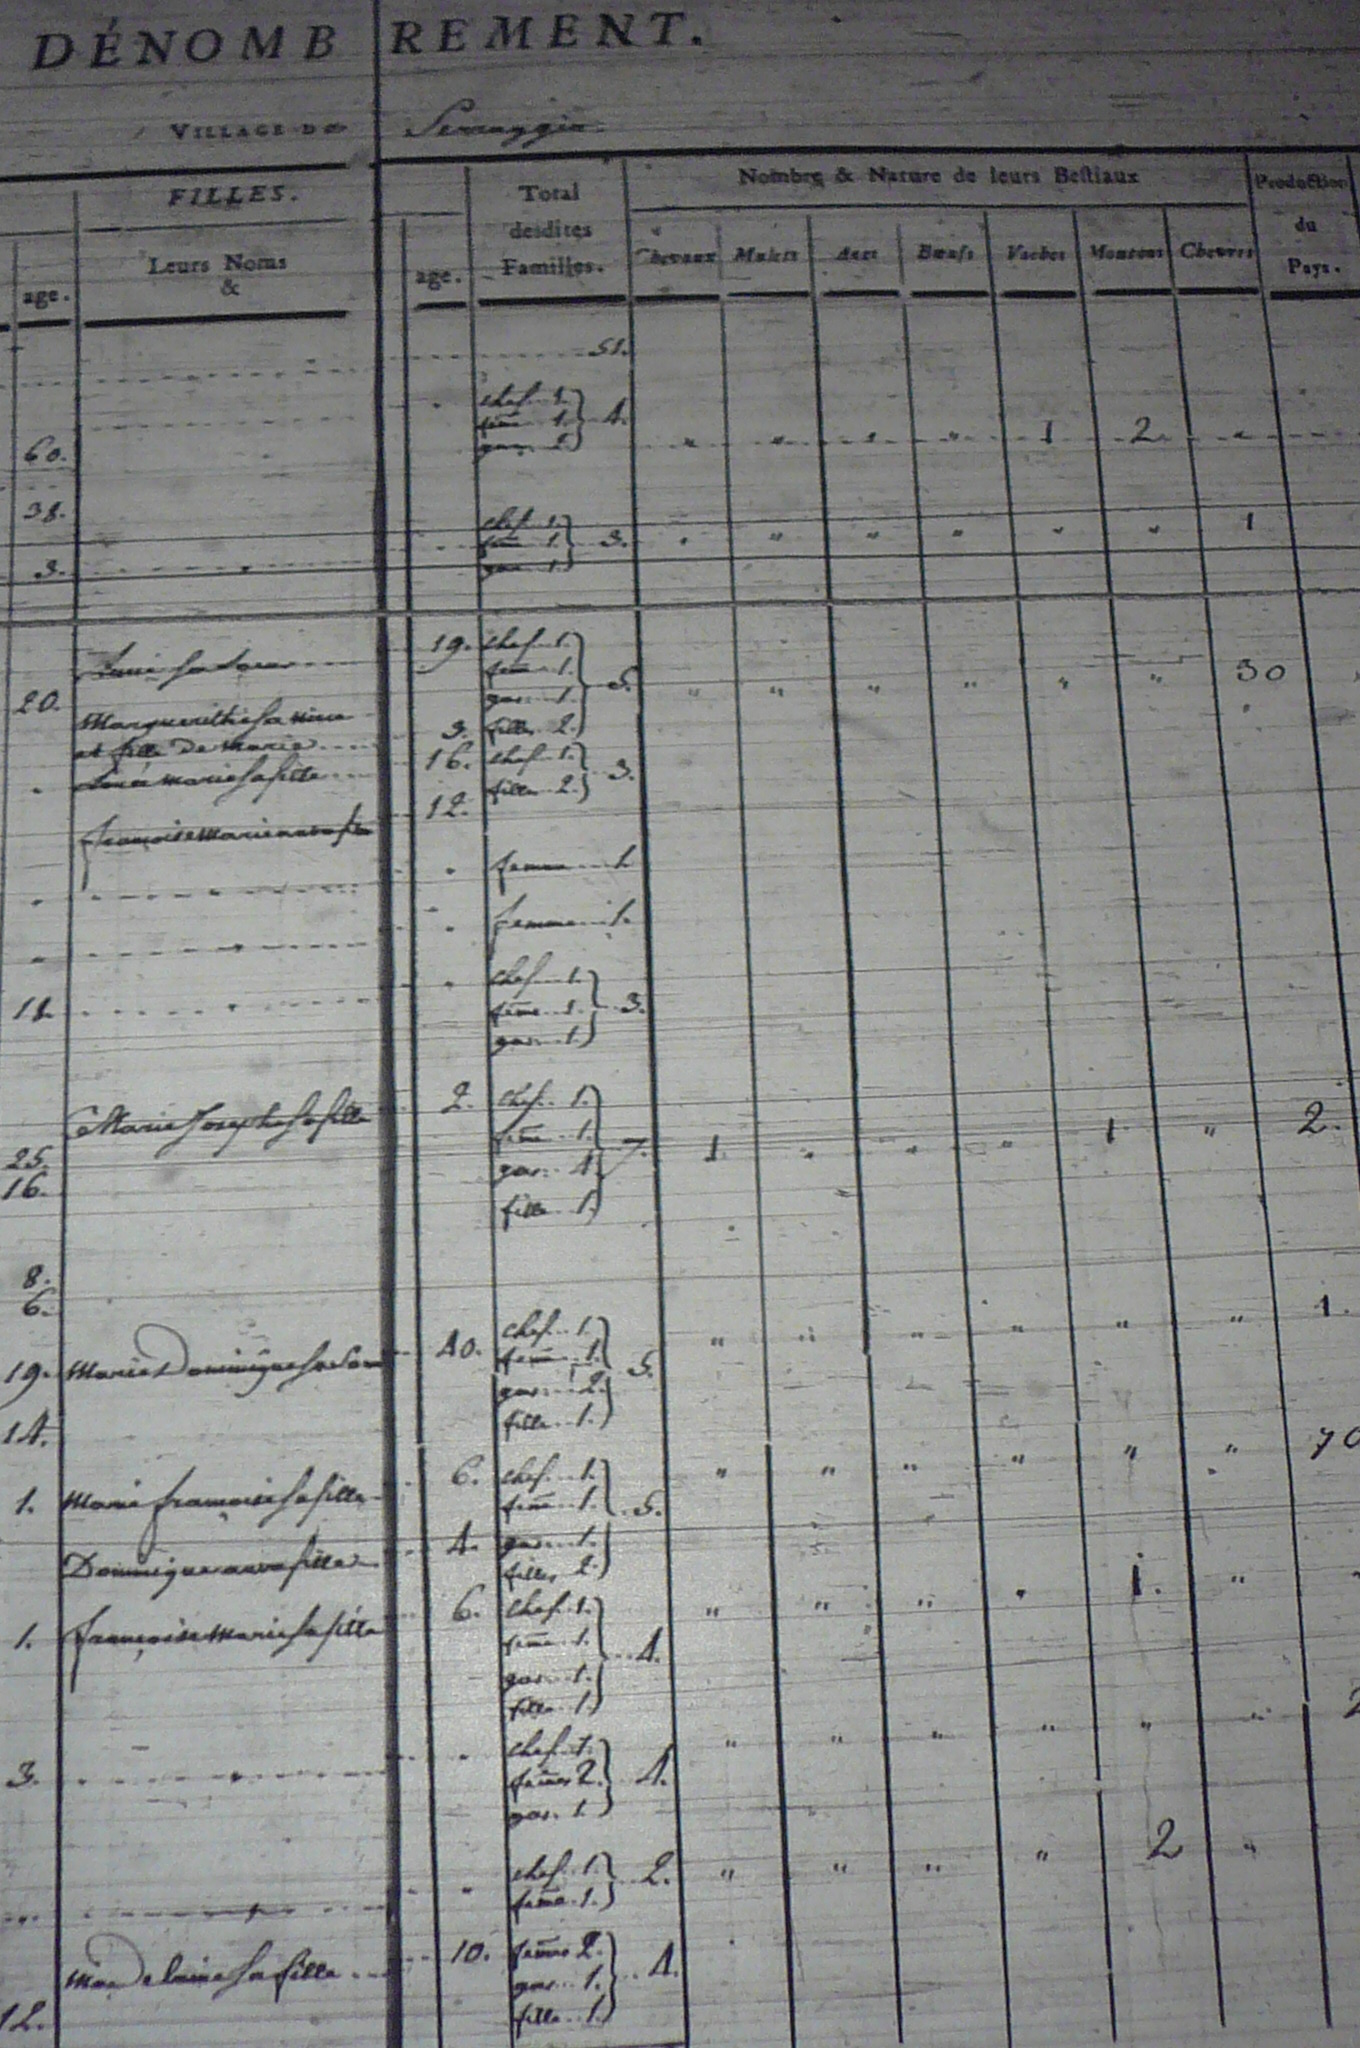 DÉNOMBREMENT.
VILLAGE DE
FILLES.
Total
desdites
Familles.
Nombre & Nature de leurs Bestiaux
Production
du
Pays.
age.
Leurs Noms
&
age.
Chevaux Mulets Anes Bœufs Vaches Moutons Chevres
51.
chef 1.
feme 1. 4.
gar. 2.
60. " " " " 1 2 "
38.
chef 1.
feme 1. 3. " " " " " " 1
3. gar. 1.
sa soeur 19. chef 1.
feme 1.
20. gar. 1. 5. " " " " " " 30
Marguerithe sa niece
et fille de Marie 3. filles 2.
Marie sa fille 16. chef 1.
12. filles 2. 3.
femme 1.
femme 1.
chef 1.
11. feme 1. 3.
gar. 1.
Marie Josephe sa fille 2. chef 1.
feme 1.
25. gar. 4. 7. 1 " " " 1 " 2.
16. fille 1.
8.
6.
19. Marie Dominique sa soeur 40. chef 1. " " " " " " 1.
feme 1. 5.
gar. 2.
14. fille 1.
1. Marie françoise sa fille 6. chef 1. " " " " " " 70
feme 1. 5.
4. gar. 1.
filles 2.
1. françoise Marie sa fille 6. chef 1. " " " " 1. "
feme 1. 4.
gar. 1.
fille 1.
chef 1. " " " " " "
3. femes 2. 4.
gar. 1.
chef 1. 2. " " " " 2 "
feme 1.
Madelaine sa fille 10. femes 2.
gar. 1. 4.
12. fille 1.